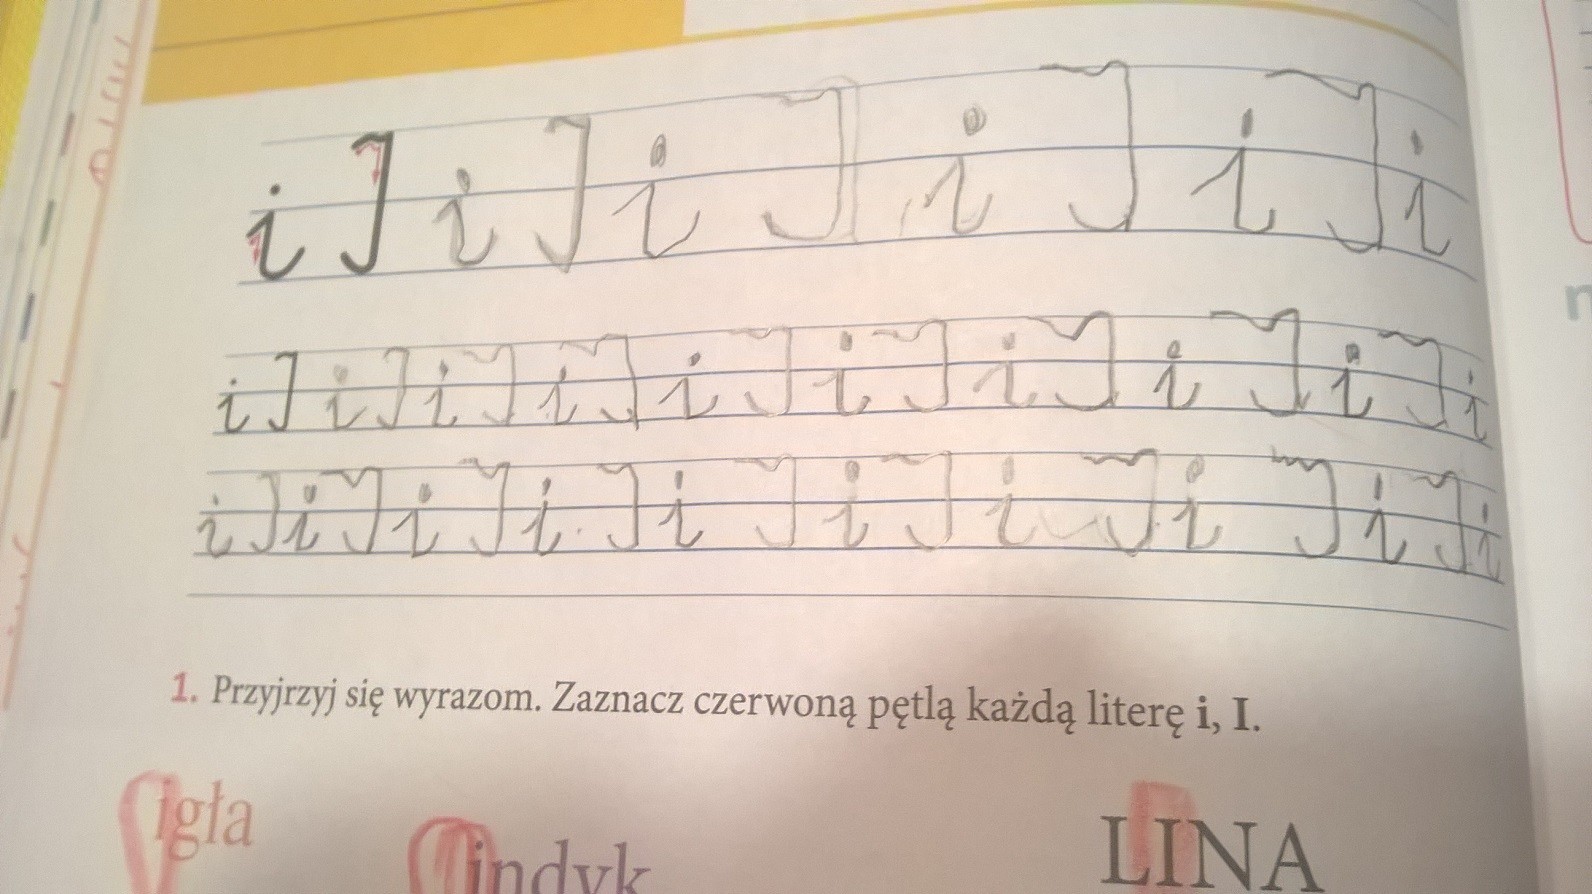 i I i I i I i I i I i
i I i I i I i I i I i I i I i I i I i
i I i I i I i I i I i I i I i I i I i
1. Przyjrzyj się wyrazom. Zaznacz czerwoną pętlą każdą literę i, I.
igła indyk LINA